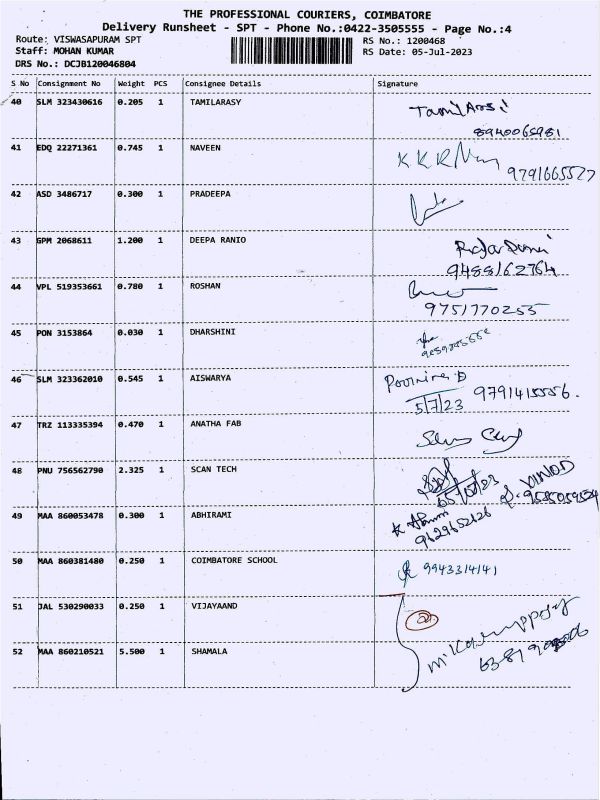 THE PROFESSIONAL COURIERS, COIMBATORE
Delivery Runsheet - SPT - Phone No.:0422-3505555 - Page No.:4
Route: VISWASAPURAM SPT
RS No.: 1200468
Staff: MOHAN KUMAR
RS Date: 05-Jul-2023
DRS No.: DCJB120046804
S No Consignment No Weight PCS Consignee Details Signature
40 SLM 323430616 0.205 1 TAMILARASY
8940065981
41 EDQ 22271361 0.745 1 NAVEEN
9791665527
42 ASD 3486717 0.300 1 PRADEEPA
43 GPM 2068611 1.200 1 DEEPA RANIO
9488162764
44 VPL 519353661 0.780 1 ROSHAN
9751770255
45 PON 3153864 0.030 1 DHARSHINI
46 SLM 323362010 0.545 1 AISWARYA
5/7/23
47 TRZ 113335394 0.470 1 ANATHA FAB
48 PNU 756562790 2.325 1 SCAN TECH
VINOD
49 MAA 860053478 0.300 1 ABHIRAMI
9629652126
50 MAA 860381480 0.250 1 COIMBATORE SCHOOL
9943314141
51 JAL 530290033 0.250 1 VIJAYAAND
52 MAA 860210521 5.500 1 SHAMALA